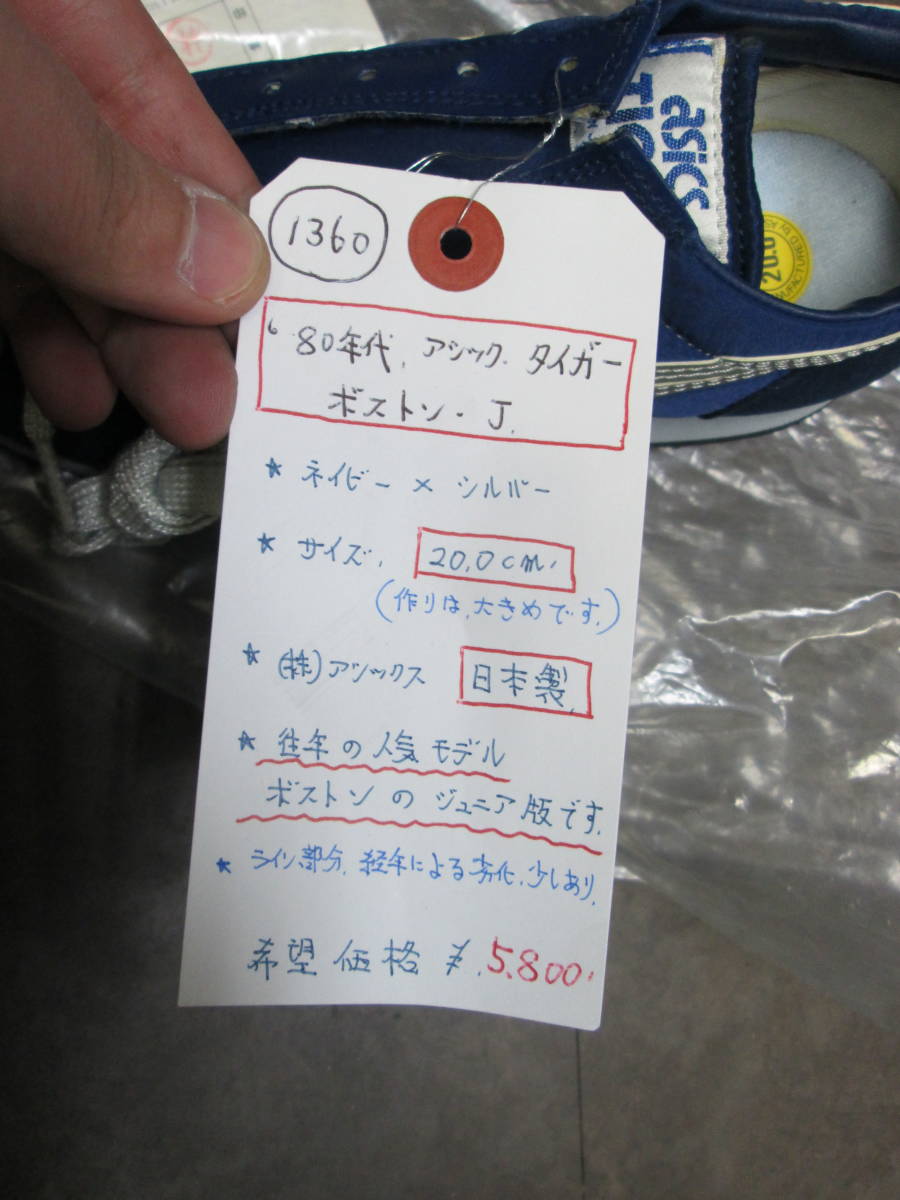 1360
'80年代, アシック. タイガー
ボストン・J.
★ ネイビー × シルバー
★ サイズ. 20.0cm.
(作りは, 大きめです.)
★ (株)アシックス 日本製.
★ 往年の人気モデル
ボストンのジュニア版です.
★ ライン部分, 経年による劣化, 少しあり.
希望価格 ¥.5.800.
asics
TIG
20.0